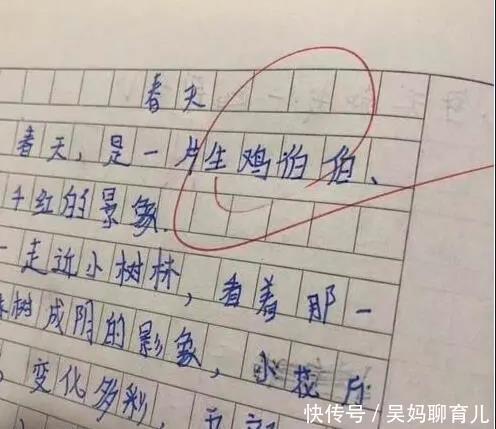 春天
春天，是一片生鸡伯伯、
千红的景象.
一走近小树林，看着那一
树成阴的影象，小花
，变化多彩，
快传号／吴妈聊育儿